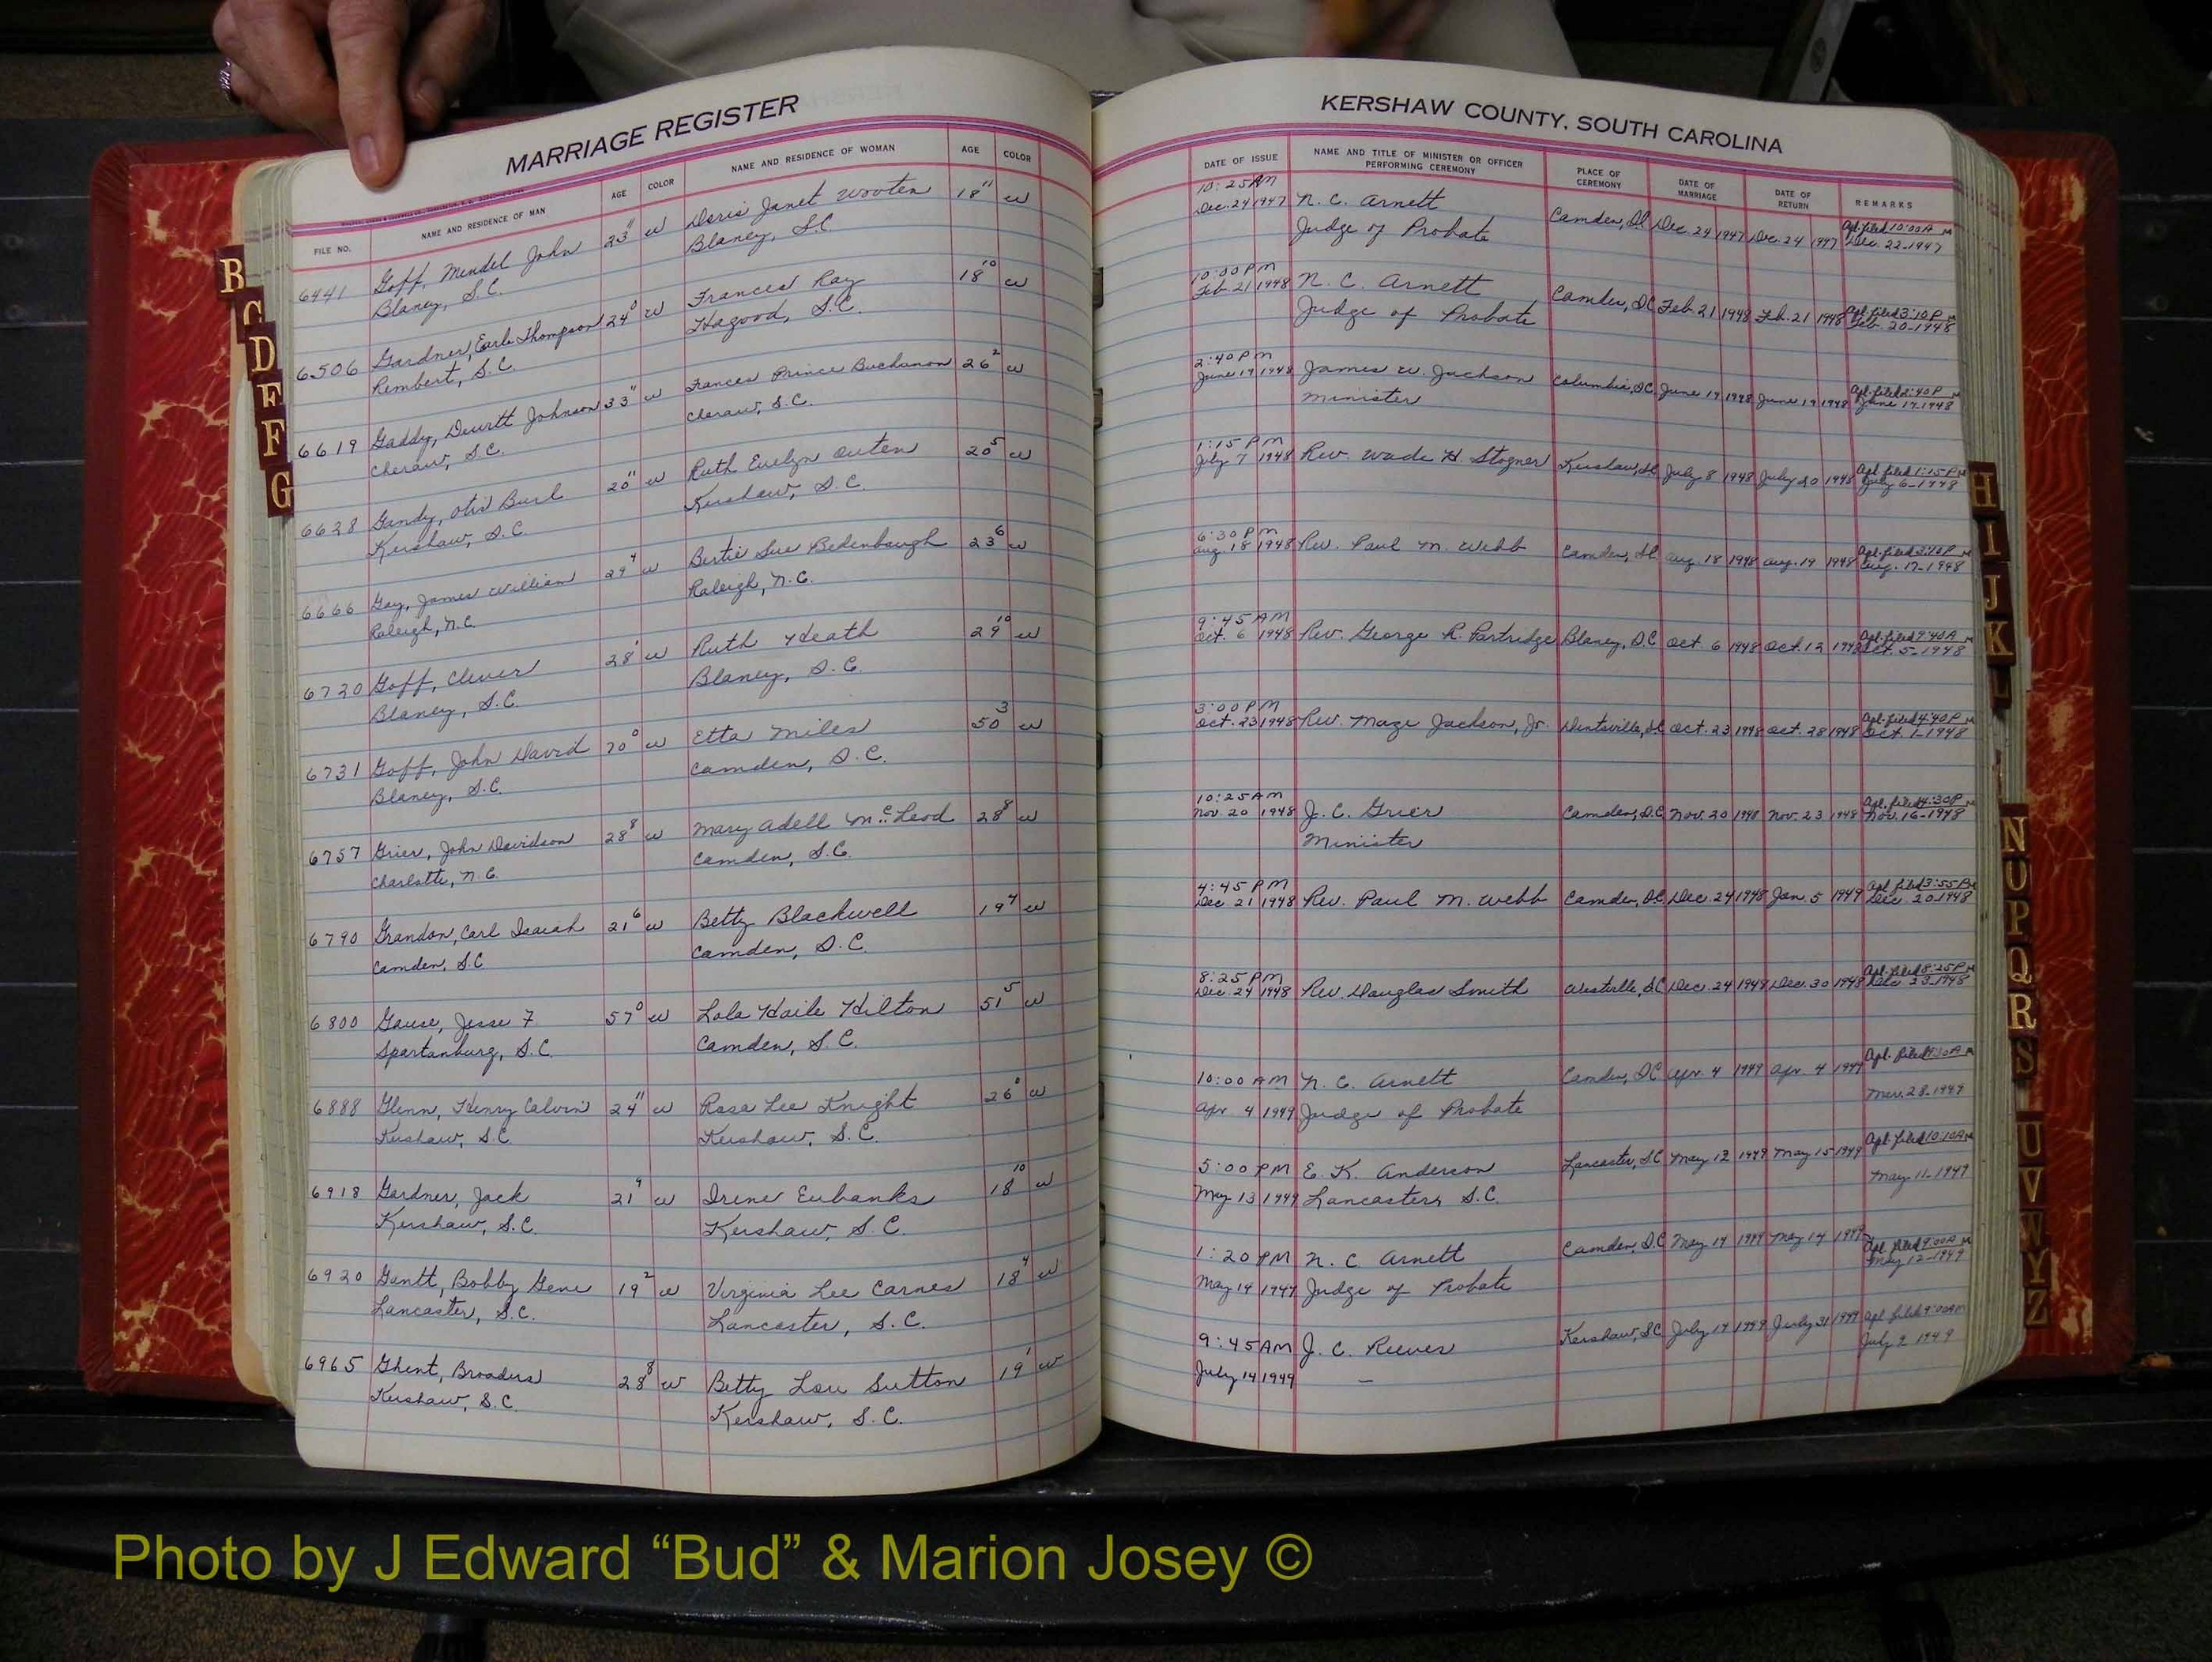 MARRIAGE REGISTER
FILE NO.
NAME AND RESIDENCE OF MAN
AGE
COLOR
NAME AND RESIDENCE OF WOMAN
AGE
COLOR
6441 Goff, Mendel John 23 11 w Doris Janet Wooten 18 11 w
Blaney, S.C. Blaney, S.C.
6506 Gardner, Earle Thompson 24 0 w Frances Ray 18 10 w
Rembert, S.C. Hagood, S.C.
6619 Gaddy, Dewitt Johnson 33 11 w Frances Prince Buchanon 26 2 w
Cheraw, S.C. Cheraw, S.C.
6628 Gandy, Otis Burl 20 11 w Ruth Evelyn Outen 20 5 w
Kershaw, S.C. Kershaw, S.C.
6666 Gay, James William 29 4 w Bertie Sue Bedenbaugh 23 6 w
Raleigh, N.C. Raleigh, N.C.
6720 Goff, Clever 28 1 w Ruth Heath 29 10 w
Blaney, S.C. Blaney, S.C.
6731 Goff, John David 70 0 w Etta Miles 50 3 w
Blaney, S.C. Camden, S.C.
6757 Grier, John Davidson 28 8 w Mary Adell McLeod 28 8 w
Charlotte, N.C. Camden, S.C.
6790 Grandon, Carl Isaiah 21 6 w Betty Blackwell 19 w
Camden, S.C. Camden, S.C.
6800 Gause, Jesse F. 57 0 w Lola Haile Hilton 51 5 w
Spartanburg, S.C. Camden, S.C.
6888 Glenn, Henry Calvin 24 11 w Rosa Lee Knight 26 0 w
Kershaw, S.C. Kershaw, S.C.
6918 Gardner, Jack 21 w Irene Eubanks 18 10 w
Kershaw, S.C. Kershaw, S.C.
6920 Gantt, Bobby Gene 19 2 w Virginia Lee Carnes 18 w
Lancaster, S.C. Lancaster, S.C.
6965 Ghent, Broadus 28 8 w Betty Lou Sutton 19 1 w
Kershaw, S.C. Kershaw, S.C.
KERSHAW COUNTY, SOUTH CAROLINA
DATE OF ISSUE
NAME AND TITLE OF MINISTER OR OFFICER
PERFORMING CEREMONY
PLACE OF
CEREMONY
DATE OF
MARRIAGE
DATE OF
RETURN
REMARKS
10:25 AM Apl. filed 10:00 A M
Dec. 24 1947 N. C. Arnett Camden, SC Dec. 24 1947 Dec. 24 1947 Dec. 22-1947
Judge of Probate
10:00 PM Apl. filed 3:10 P M
Feb. 21 1948 N. C. Arnett Camden, SC Feb. 21 1948 Feb. 21 1948 Feb. 20-1948
Judge of Probate
2:40 PM Apl. filed 2:40 P M
June 19 1948 James W. Jackson Columbia, SC June 19 1948 June 19 1948 June 17-1948
Minister
1:15 PM Apl. filed 1:15 P M
July 7 1948 Rev. Wade H. Stogner Kershaw, SC July 8 1948 July 20 1948 July 6-1948
6:30 PM Apl. filed P M
Aug. 18 1948 Rev. Paul M. Webb Camden, SC Aug. 18 1948 Aug. 19 1948 Aug. 17-1948
9:45 AM Apl. filed 9:40 A M
Oct. 6 1948 Rev. George R. Partridge Blaney, SC Oct. 6 1948 Oct. 12 1948 Oct. 5-1948
3:00 PM Apl. filed 4:40 P M
Oct. 23 1948 Rev. Maze Jackson, Jr. SC Oct. 23 1948 Oct. 28 1948 Oct. 1-1948
10:25 AM Apl. filed 4:30 P M
Nov 20 1948 J. C. Grier Camden, SC Nov. 20 1948 Nov. 23 1948 Nov. 16-1948
Minister
4:45 PM Apl. filed 3:55 P M
Dec 21 1948 Rev. Paul M. Webb Camden, SC Dec. 24 1948 Jan. 5 1949 Dec. 20-1948
8:25 PM Apl. filed 8:25 P M
Dec. 24 1948 Rev. Douglas Smith Westville, SC Dec. 24 1948 Dec. 30 1948 Dec. 23-1948
10:00 AM N. C. Arnett Camden, SC Apr. 4 1949 Apr. 4 1949 Apl. filed A M
Apr 4 1949 Judge of Probate Mar. 28-1949
5:00 PM E. K. Anderson Lancaster, SC May 1949 May 15 1949 Apl. filed 10:10 A M
May 13 1949 Lancaster, S.C. May 11-1949
1:20 PM N. C. Arnett Camden, SC May 14 1949 May 14 1949 Apl. filed 9:00 A M
May 14 1949 Judge of Probate May 12-1949
9:45 AM J. C. Reeves Kershaw, SC July 1949 July 31 1949 Apl. filed 9:00 AM
July 14 1949 — July 9 1949
B
C
D
E
F
G
H
I
J
K
L
N
O
P
Q
R
S
U
V
W
Y
Z
Photo by J Edward “Bud” & Marion Josey ©